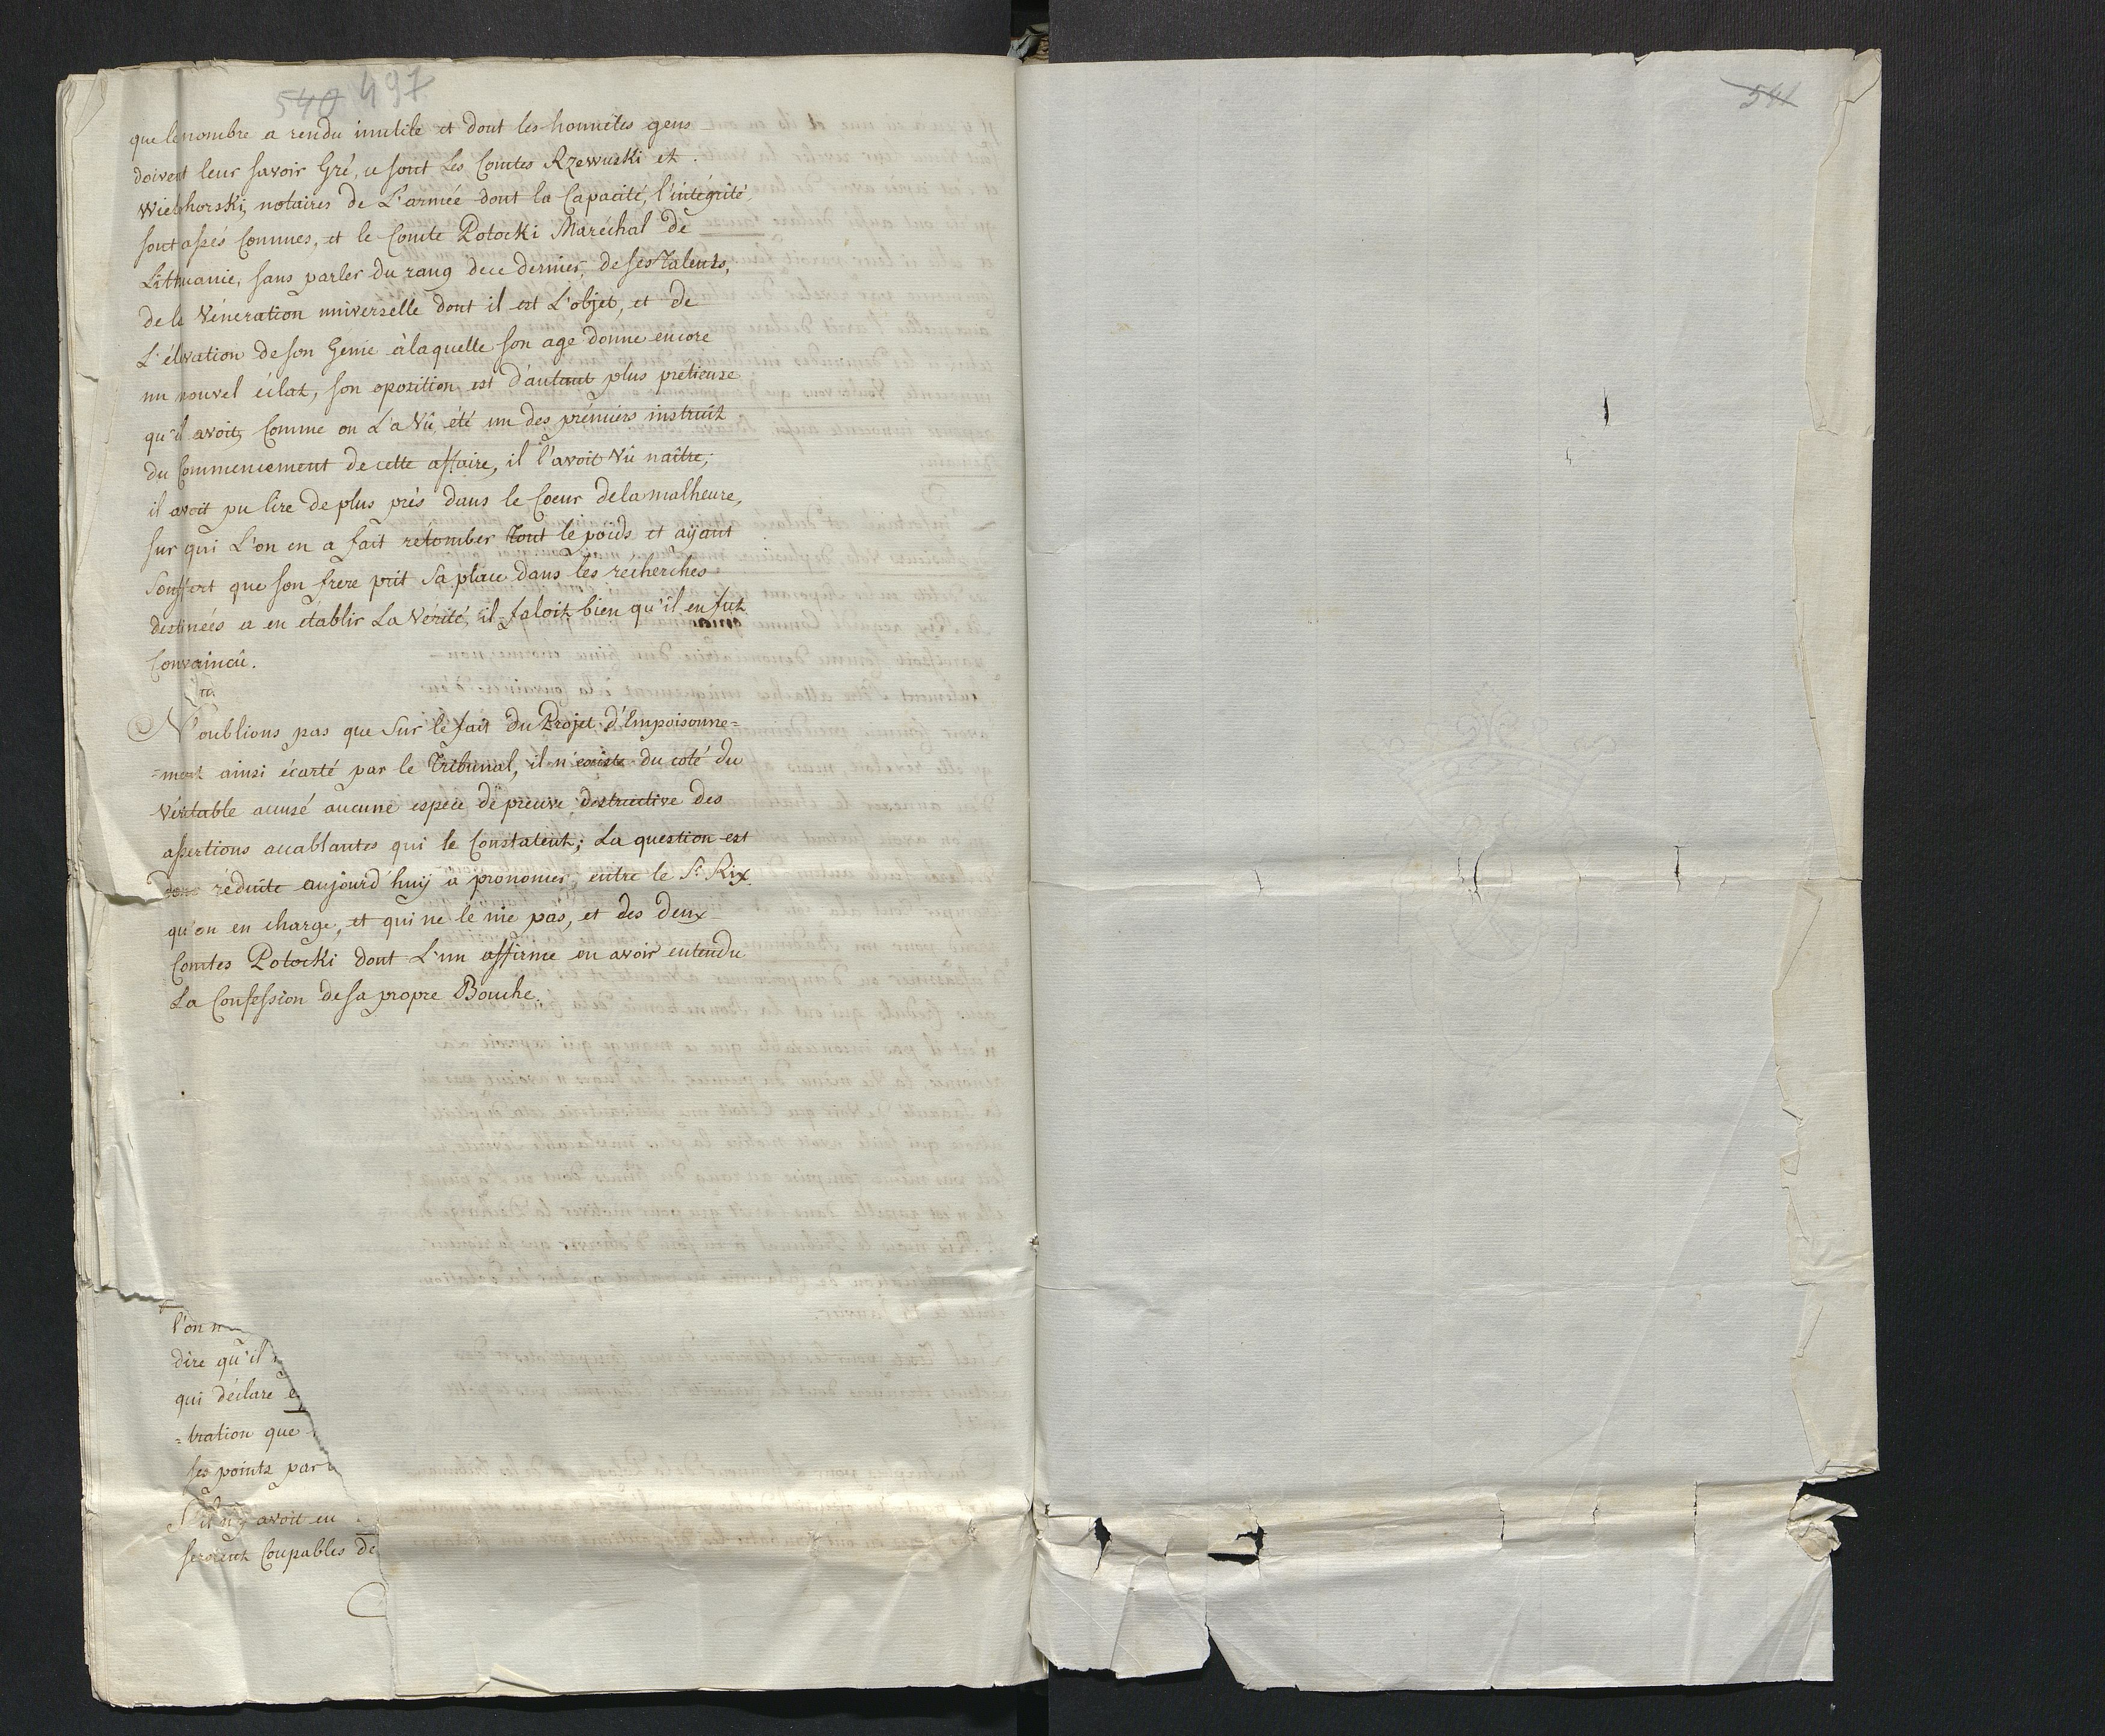 540 497
que le nombre a rendu inutile et dont les honnêtes gens
doivent leur savoir Gré, ce sont Les Comtes Rzewuski et
Wielhorski, notaires de L'armée dont la Capacité, l'intégrité
sont assés Connues, et le Comte Potocki Maréchal de
Lithuanie, sans parler du rang de ce dernier, de ses Talents,
de la Vénération universelle dont il est L'objet, et de
L'élevation de son Genie à laquelle son age donne encore
un nouvel éclat, son oposition est d'autant plus pretieuse
qu'il avoit, Comme on L'a Vû, été un des prémiers instruit
du Commencement de cette affaire, il l'avoit Vû naître;
il avoit pu lire de plus près dans le Coeur de la malheure,
sur qui L'on en a fait retomber tout le poids et aijant
Souffert que son frere prit Sa place dans les recherches
destinées a en établir La Vérité, il faloit bien qu'il en fut
Convaincû.
N'oublions pas que Sur le fait du Projet d'Empoisonne=
=ment ainsi écarté par le Tribunal, il n'existe du coté du
Véritable accusé aucune espéce de preuve destructive des
assertions accablantes qui le Constatent; La question est
donc réduite aujourd'huij à prononcer, entre le Sr. Rix
qu'on en charge, et qui ne le nie pas, et des deux
Comtes Potocki dont L'un affirme en avoir entendu
La Confession de sa propre Bouche.
l'on n
dire qu'il
qui déclare
=tration que
ses points par
S'il n'y avoit eu
seroient Coupables de
541